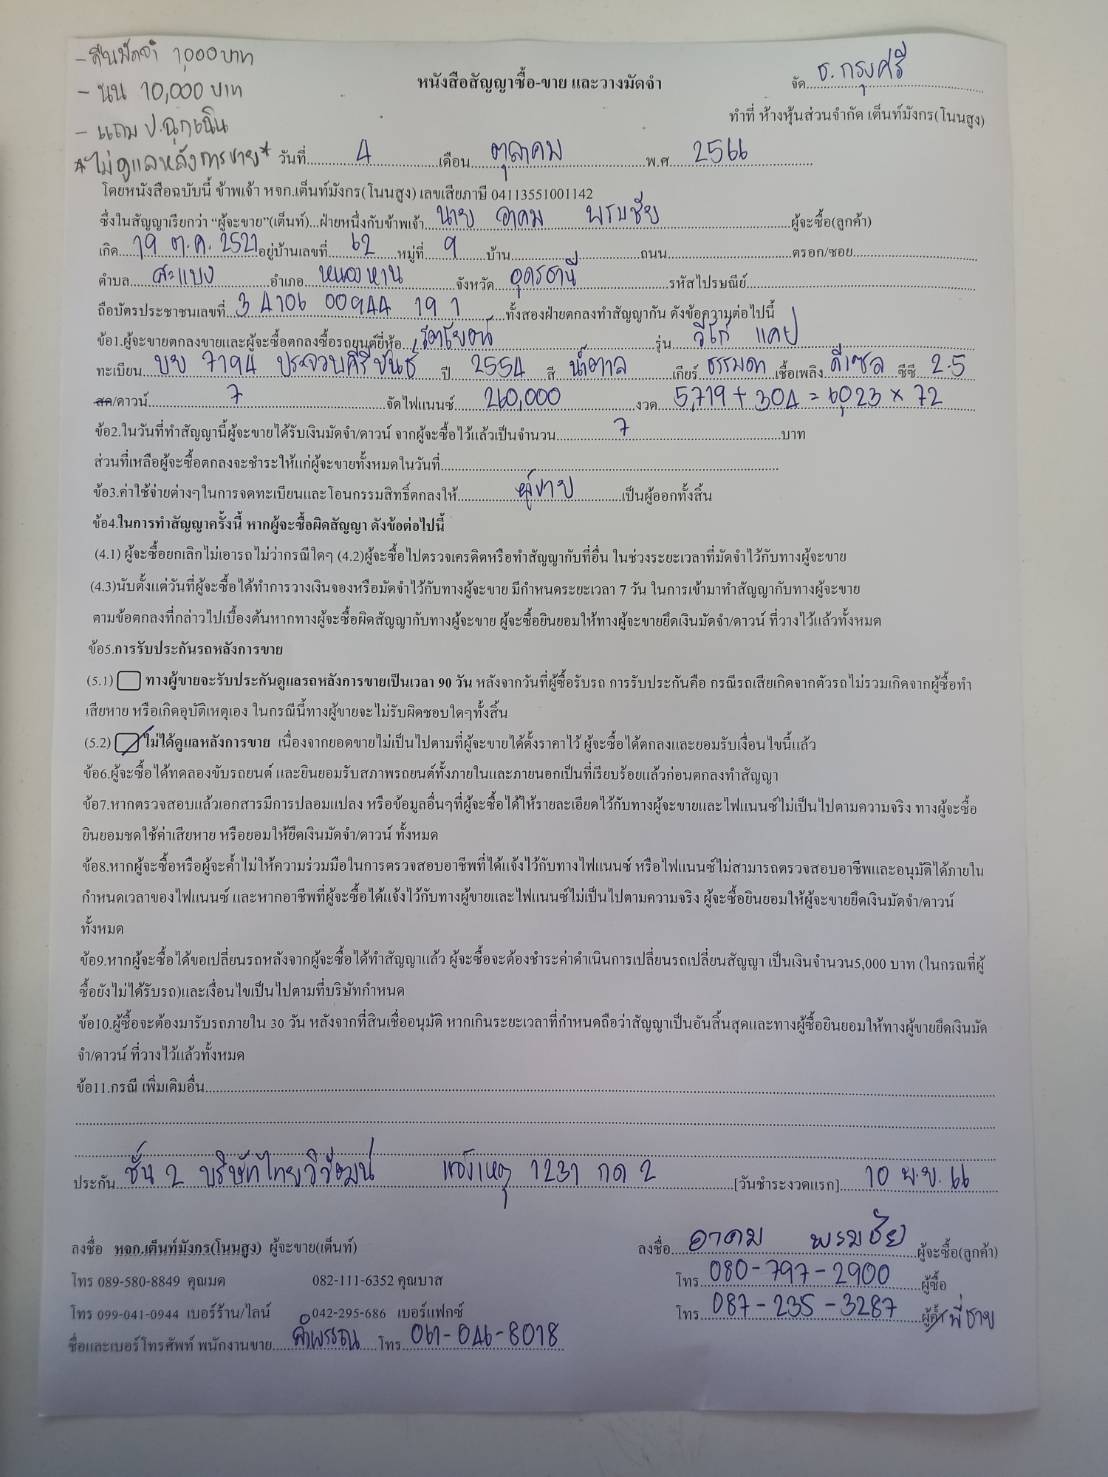 - คืนมัดจำ 1,000 บาท
- นน 10,000 บาท
- แถม ป.ฉุกเฉิน
*ไม่ดูแลหลังการขาย*
หนังสือสัญญาซื้อ-ขาย และวางมัดจำ
จัด ธ.กรุงศรี
ทำที่ ห้างหุ้นส่วนจำกัด เต็นท์มังกร(โนนสูง)
วันที่ 4 เดือน ตุลาคม พ.ศ. 2566
โดยหนังสือฉบับนี้ ข้าพเจ้า หจก.เต็นท์มังกร(โนนสูง) เลขเสียภาษี 04113551001142
ซึ่งในสัญญาเรียกว่า "ผู้จะขาย"(เต็นท์)...ฝ่ายหนึ่งกับข้าพเจ้า นาย อาคม พรมชัย ผู้จะซื้อ(ลูกค้า)
เกิด 19 ต.ค. 2521 อยู่บ้านเลขที่ 62 หมู่ที่ 9 บ้าน ถนน ตรอก/ซอย
ตำบล สะแบง อำเภอ หนองหาน จังหวัด อุดรธานี รหัสไปรษณีย์
ถือบัตรประชาชนเลขที่ 3 4106 00944 19 1 ทั้งสองฝ่ายตกลงทำสัญญากัน ดังข้อความต่อไปนี้
ข้อ1.ผู้จะขายตกลงขายและผู้จะซื้อตกลงซื้อรถยนต์ยี่ห้อ รุ่น วีโก้ แคป
ทะเบียน บย 7194 ประจวบคีรีขันธ์ ปี 2554 สี น้ำตาล เกียร์ ธรรมดา เชื้อเพลิง ดีเซล ซีซี 2.5
สด/ดาวน์ 7 จัดไฟแนนซ์ 260,000 งวด 5,719 + 304 = 6,023 × 72
ข้อ2.ในวันที่ทำสัญญานี้ผู้จะขายได้รับเงินมัดจำ/ดาวน์ จากผู้จะซื้อไว้แล้วเป็นจำนวน 7 บาท
ส่วนที่เหลือผู้จะซื้อตกลงจะชำระให้แก่ผู้จะขายทั้งหมดในวันที่
ข้อ3.ค่าใช้จ่ายต่างๆในการจดทะเบียนและโอนกรรมสิทธิ์ตกลงให้ ผู้ขาย เป็นผู้ออกทั้งสิ้น
ข้อ4.ในการทำสัญญาครั้งนี้ หากผู้จะซื้อผิดสัญญา ดังข้อต่อไปนี้
(4.1) ผู้จะซื้อยกเลิกไม่เอารถ ไม่ว่ากรณีใดๆ (4.2)ผู้จะซื้อไปตรวจเครดิตหรือทำสัญญากับที่อื่น ในช่วงระยะเวลาที่มัดจำไว้กับทางผู้จะขาย
(4.3)นับตั้งแต่วันที่ผู้จะซื้อได้ทำการวางเงินจองหรือมัดจำไว้กับทางผู้จะขาย มีกำหนดระยะเวลา 7 วัน ในการเข้ามาทำสัญญากับทางผู้จะขาย
ตามข้อตกลงที่กล่าวไปเบื้องต้นหากทางผู้จะซื้อผิดสัญญากับทางผู้จะขาย ผู้จะซื้อยินยอมให้ทางผู้จะขายยึดเงินมัดจำ/ดาวน์ ที่วางไว้แล้วทั้งหมด
ข้อ5.การรับประกันรถหลังการขาย
(5.1) ทางผู้ขายจะรับประกันดูแลรถหลังการขายเป็นเวลา 90 วัน หลังจากวันที่ผู้ซื้อรับรถ การรับประกันคือ กรณีรถเสียเกิดจากตัวรถ ไม่รวมเกิดจากผู้ซื้อทำ
เสียหาย หรือเกิดอุบัติเหตุเอง ในกรณีนี้ทางผู้ขายจะไม่รับผิดชอบใดๆทั้งสิ้น
(5.2) ไม่ได้ดูแลหลังการขาย เนื่องจากยอดขายไม่เป็นไปตามที่ผู้จะขายได้ตั้งราคาไว้ ผู้จะซื้อได้ตกลงและยอมรับเงื่อนไขนี้แล้ว
ข้อ6.ผู้จะซื้อได้ทดลองขับรถยนต์ และยินยอมรับสภาพรถยนต์ทั้งภายในและภายนอกเป็นที่เรียบร้อยแล้วก่อนตกลงทำสัญญา
ข้อ7.หากตรวจสอบแล้วเอกสารมีการปลอมแปลง หรือข้อมูลอื่นๆที่ผู้จะซื้อได้ให้รายละเอียดไว้กับทางผู้จะขายและไฟแนนซ์ไม่เป็นไปตามความจริง ทางผู้จะซื้อ
ยินยอมชดใช้ค่าเสียหาย หรือยอมให้ยึดเงินมัดจำ/ดาวน์ ทั้งหมด
ข้อ8.หากผู้จะซื้อหรือผู้จะค้ำไม่ให้ความร่วมมือในการตรวจสอบอาชีพที่ได้แจ้งไว้กับทางไฟแนนซ์ หรือไฟแนนซ์ไม่สามารถตรวจสอบอาชีพและอนุมัติได้ภายใน
กำหนดเวลาของไฟแนนซ์ และหากอาชีพที่ผู้จะซื้อได้แจ้งไว้กับทางผู้ขายและไฟแนนซ์ไม่เป็นไปตามความจริง ผู้จะซื้อยินยอมให้ผู้จะขายยึดเงินมัดจำ/ดาวน์
ทั้งหมด
ข้อ9.หากผู้จะซื้อได้ขอเปลี่ยนรถหลังจากผู้จะซื้อได้ทำสัญญาแล้ว ผู้จะซื้อจะต้องชำระค่าดำเนินการเปลี่ยนรถเปลี่ยนสัญญา เป็นเงินจำนวน5,000 บาท (ในกรณที่ผู้
ซื้อยังไม่ได้รับรถ)และเงื่อนไขเป็นไปตามที่บริษัทกำหนด
ข้อ10.ผู้ซื้อจะต้องมารับรถภายใน 30 วัน หลังจากที่สินเชื่ออนุมัติ หากเกินระยะเวลาที่กำหนดถือว่าสัญญาเป็นอันสิ้นสุดและทางผู้ซื้อยินยอมให้ทางผู้ขายยึดเงินมัด
จำ/ดาวน์ ที่วางไว้แล้วทั้งหมด
ข้อ11.กรณี เพิ่มเติมอื่น
ประกัน ชั้น 2 บริษัทไทยวิวัฒน์ แจ้งเหตุ 1231 กด 2 [วันชำระงวดแรก] 10 พ.ย. 66
ลงชื่อ หจก.เต็นท์มังกร(โนนสูง) ผู้จะขาย(เต็นท์)
ลงชื่อ อาคม พรมชัย ผู้จะซื้อ(ลูกค้า)
โทร 089-580-8849 คุณมด 082-111-6352 คุณบาส
โทร 080-797-2900 ผู้ซื้อ
โทร 099-041-0944 เบอร์ร้าน/ไลน์ 042-295-686 เบอร์แฟกซ์
โทร 087-235-3287 ผู้ค้ำ พี่ชาย
ชื่อและเบอร์โทรศัพท์ พนักงานขาย โทร 061-046-8018